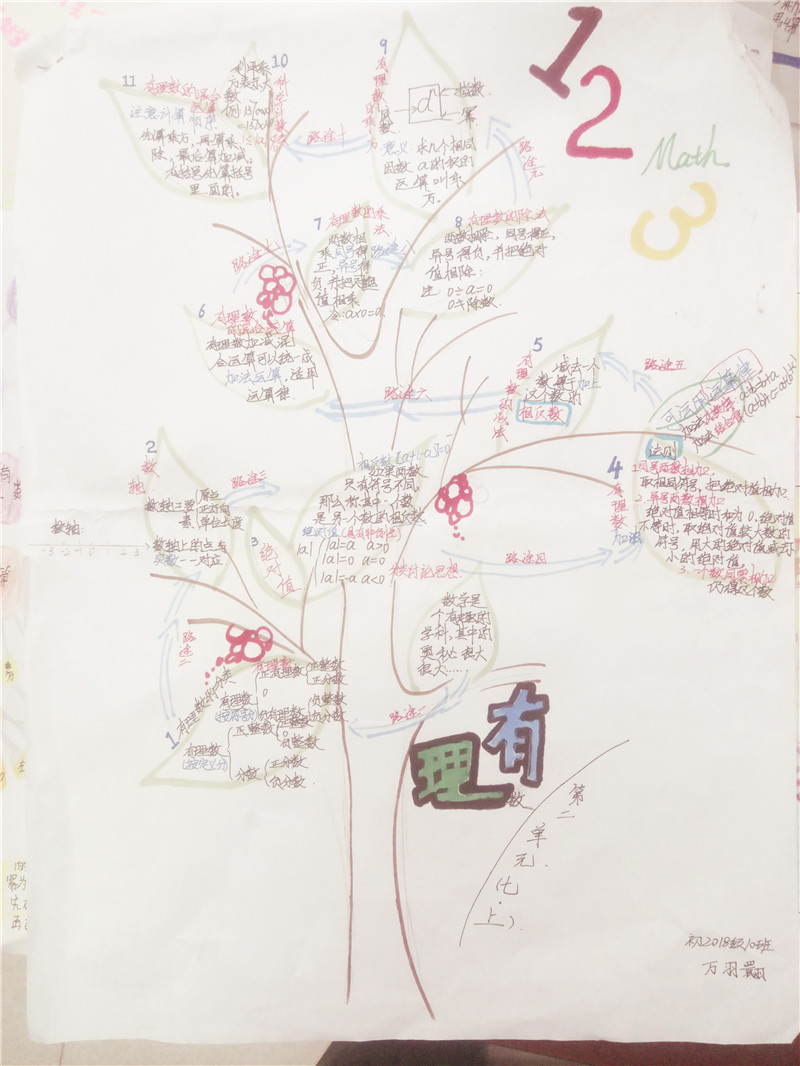 1
2
3
Math
11
有理数的混合
运算
注意计算顺序.
先算乘方,再算乘
除,最后算加减,
有括号先算括号
里面的.
10
科学记数法
路途十
9
有理数的乘方
aⁿ
指数.
幂
底数.
意义:求几个相同
因数a的积的
运算叫乘
方.
路途九
7
有理数的乘
法
两数相
乘,同号得
正,异号得
负,并把绝对
值相乘
a×0=0
路途七
路途八
8
有理数的除法
两数相除,同号得正,
异号得负,并把绝对
值相除;
注: 0÷a=0
0不除数.
6
有理数
加减混合运算
有理数加减混
合运算可以统一成
加法运算,运用
运算律.
路途六
5
有理数的减法
减去一个
数,等于加上
这个数的
相反数
路途五
可运用运算律
加法交换律 a+b=b+a
加法结合律
4
有理数
加法
法则
1.同号两数相加
取相同符号,把绝对值相加.
2.异号两数相加
绝对值相等时和为0.绝对值
不等时,取绝对值较大数的
符号,用大的绝对值减去
小的绝对值.
3.一个数同零相加
仍得这个数
路途四
2
数轴
数轴三要素
原点
正方向
单位长度
数轴上的点与
实数一一对应
数轴:
-3 -2 -1 0 1 2 3
路途三
3
绝对值
相反数
如果两数
只有符号不同,
那么称其中一个数
是另一个数的相反数
绝对值(具有非负性)
|a|
|a|=a a>0
|a|=0 a=0
|a|=-a a<0
分类讨论思想
路途二
数学是
一个有趣的
学科,其中的
奥秘很大
很大……
路途一
1
有理数的分类
有理数
(按符号分)
正有理数
正整数
正分数
0
负有理数
负整数
负分数
有理数
(按定义分)
整数
正整数
0
负整数
分数
正分数
负分数
有
理
数
第二单元.(七.上).
初2018级10班
万羽